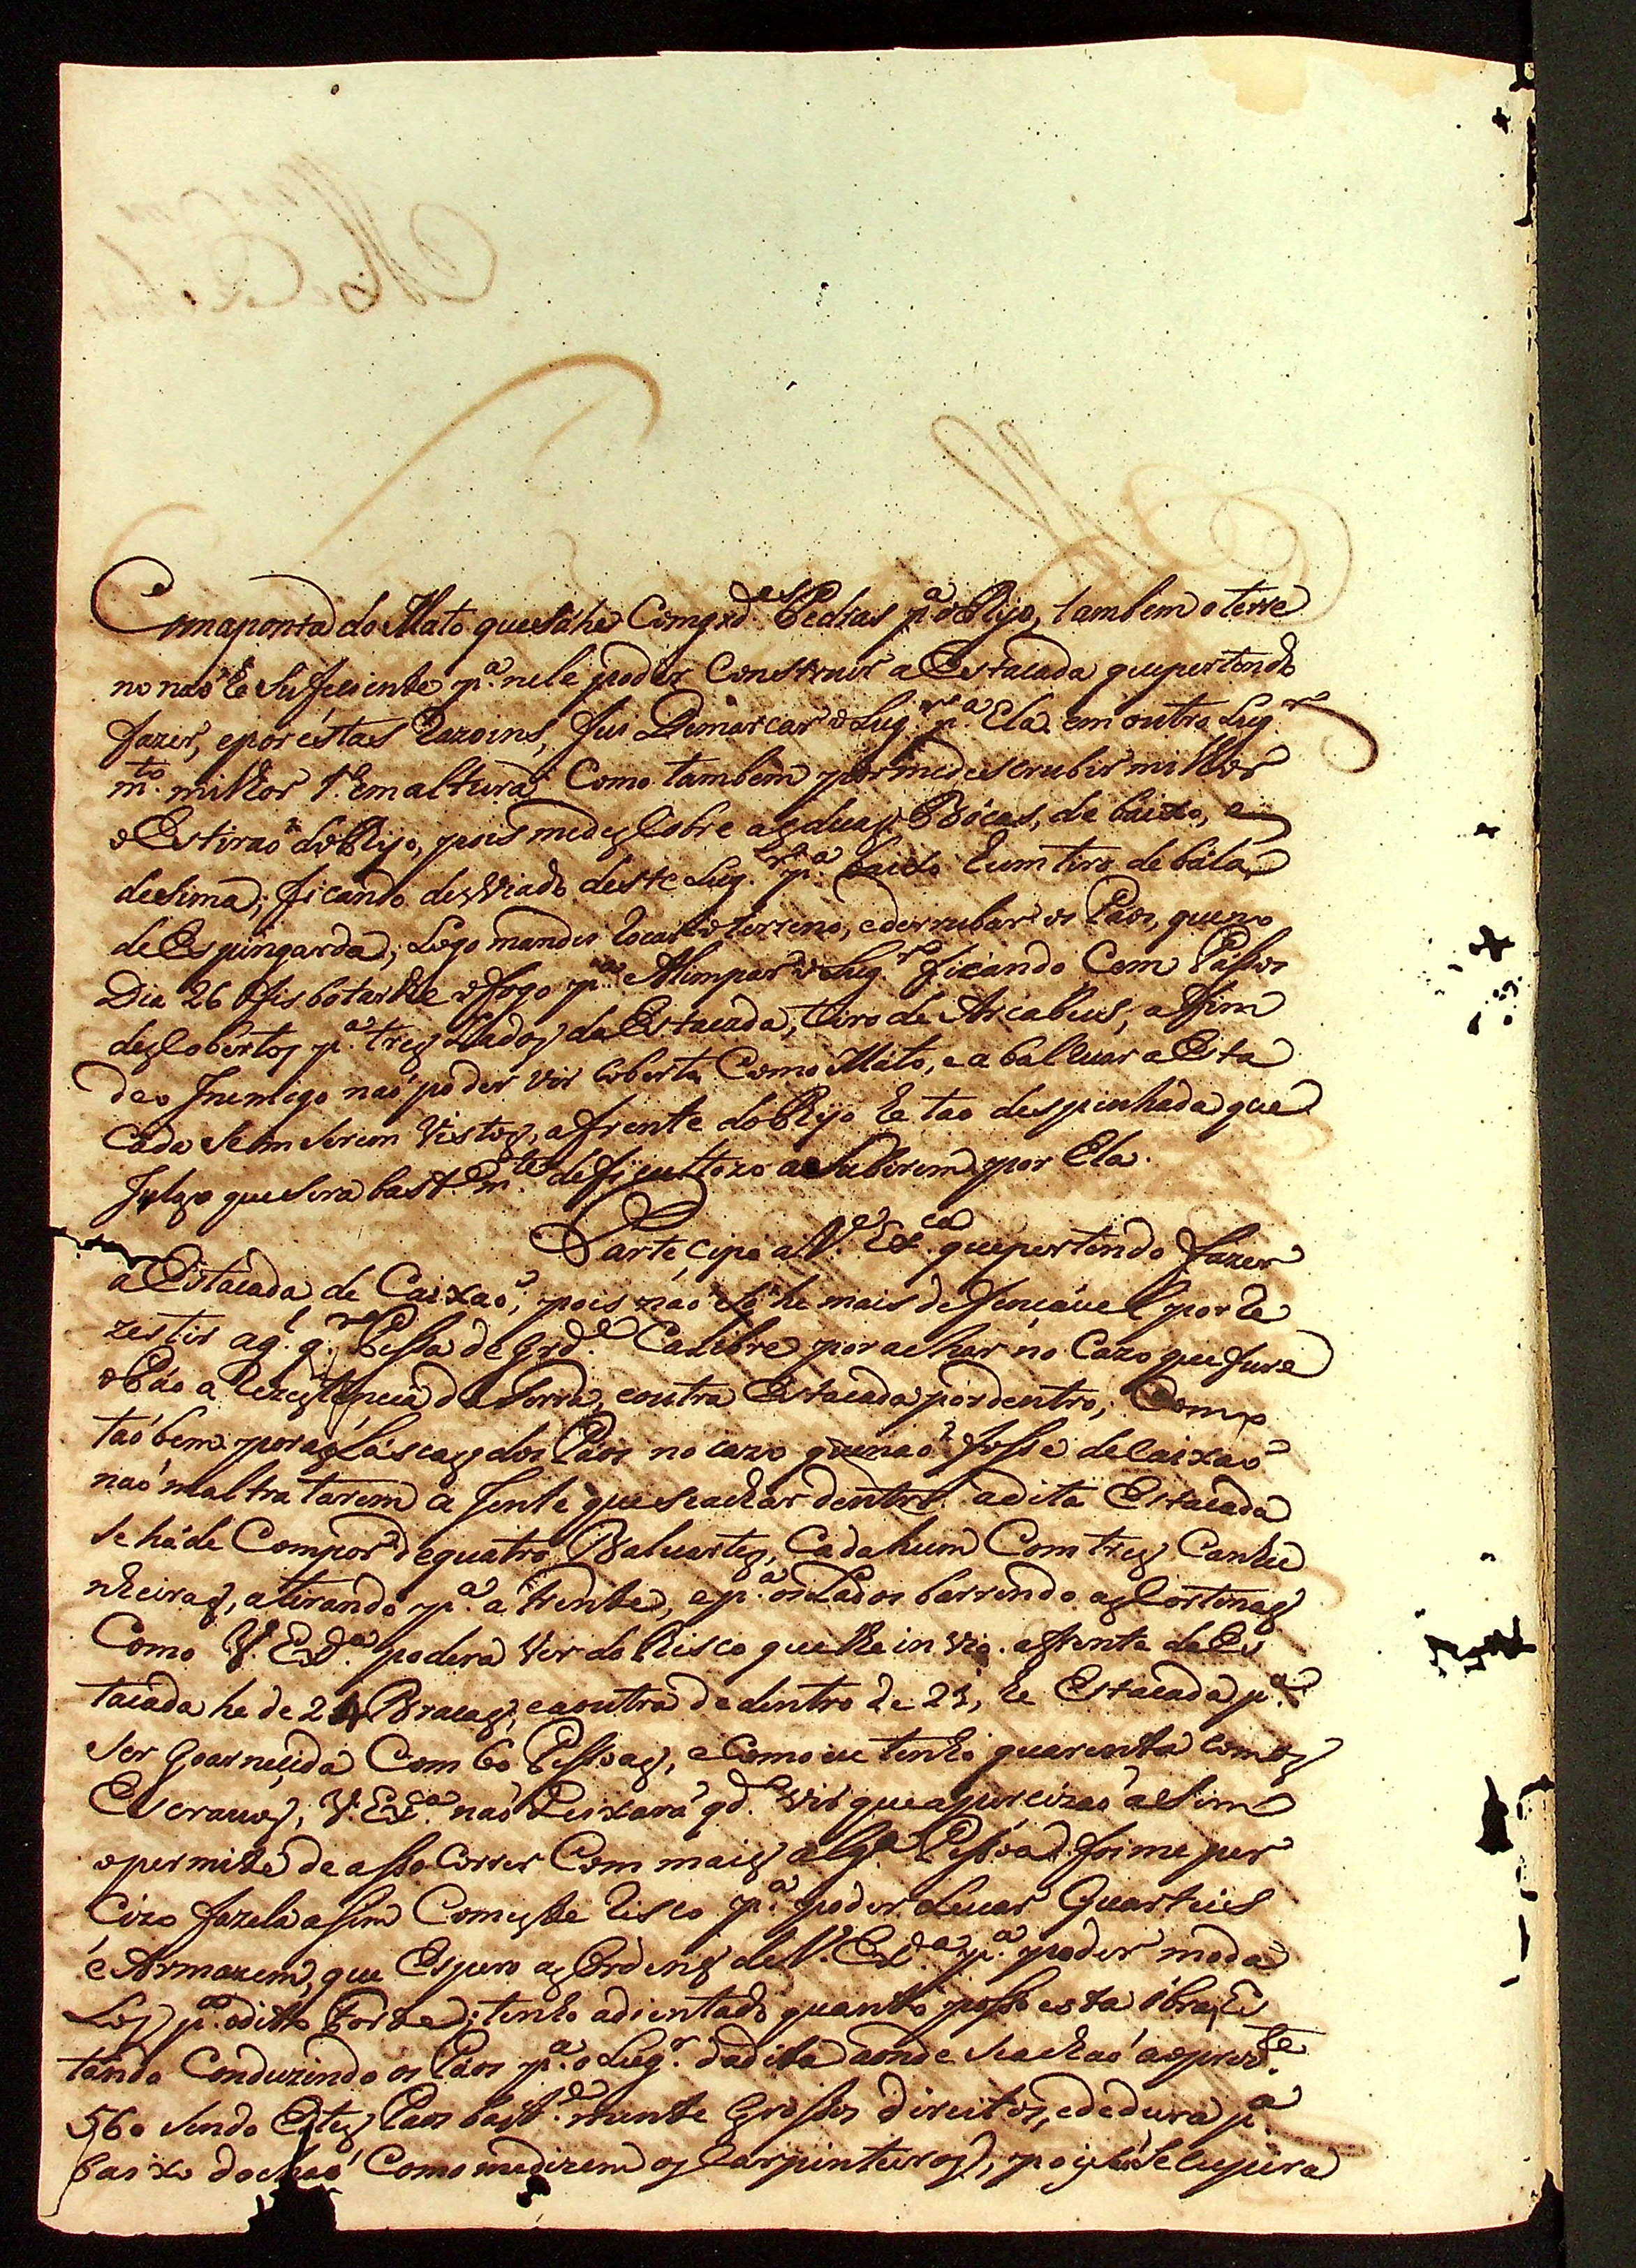 Humaponta do Mato que sáhe Com grd.es Pedras p.a o Rijo, tambem o terre
no naõ he Sufeciente p.a nele poder Construir a Estacada que pertendo
fazer, e por estas Razoins, fui Demarcar o Lug.r p.a Ela em outro Lug.r
m.to milhor em altura Como tambem por me descubrir milhor
o Estiraõ do Rijo, pois me descobre as duas Bócas, de baixo, e
de sima; ficando desviado deste Lug.r p.a baixo hum tiro de bála
de Espingarda; Logo mandei rocar o terreno, e derrubar os Páos, que no
Dia 26 fis botar lhe o fogo p.a Alimpar o Lug.r ficando Com Pássos
descobertos p.a tres Lados da Estacada, tiro de Arcabus, assim
de o Inemigo naõ poder vir coberto Como Mato, e abalruar a Esta
cada sem serem Vistos, a frente do Rijo he tao despinhada que
Julgo que sera bast.e m.te defiqultozo a Subirem por Ela.
Partecipo a V.a Ex.ca que pertendo fazer
a Estacada de Caixaõ, pois naõ só he mais defençável por Re
zestir a q.l q.r Pessa de Grd.e Calibre por achar no Cazo que fure
o Páo a Rezestencia da terra, e outra Estacada por dentro; Como
taõbem por as Láscas dos Páos no cazo que naõ fosse de caixaõ
naõ maltratarem a Jente que se achar dentro. a dita Estacada
se háde Compor de quatro Baluartes, Cada hum Com tres Canho
nheiras, atirando p.a a frente, e p.a os Lados barrendo as Cortinas
Como V. Ex.a podera Ver do Risco que lhe invio. a frente da Es
tacada he de 24 Bracas, e a outra de dentro de 21, he Estacada p.a
ser Goarnecida Com 60 Pessoas, e Como eu tenho quarenta com os
Escravos, V. Ex.a naõ Deixará qd.o vir que a percizaõ asim
o permite de assocorrer Com mais alg.a Pessoa. foi me per
cizo fazela asim Com este Risco p.a poder Levar Quarteis
e Armazem, que Espero as Ordens de V. Ex.a p.a poder moda
Los p.a o dito Forte; tenho adientado quanto posso esta óbra, Es
tando Conduzindo os Páos p.a o Lug.r da dita aonde se achaõ ao prez.te
560 sendo Estes Páos bast.e mente Grossos direitos, e de dura p.a
baixo do chaõ Como me dizem os Carpinteiros, pois he Secupira